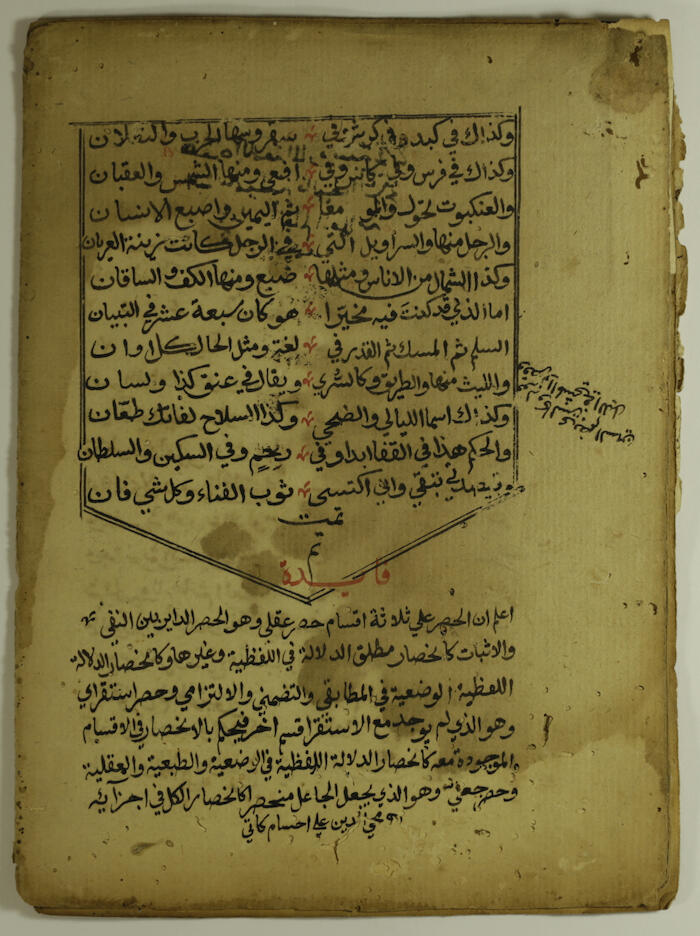 وكذاك في كبد وفي كرش وفي سقر ومنها الحرب والنعلان
وكذاك في فرس وفي كاس وفي افعى ومنها الشمس والعقبان
والعنكبوت تحول والموسى معا ثم اليمين واصبع الانسان
والرجل منها والسراويل التي في الرجل كانت زينة العريان
وكذا الشمال من الاناس ومثلها ضبع ومنها الكف والساقان
اما الذي قد كنت فيه مخيرا هو كان سبعة عشر في التبيان
السلم ثم المسك ثم القدر في لغة ومثل الحال كل اوان
والليث منها والطريق وكالسرى ويقال في عنق كذا ولسان
وكذاك اسما الليالي والضحى وكذا السلاح لقاتك طعان
والحكم هذا في القفا ابدا وفي رحم وفي السكين والسلطان
تبقى واني اكتسى ثوب الفناء وكل شي فان
تمت
تم
فايدة
اعلم ان الحصر على ثلاثة اقسام حصر عقلي وهو الحصر الداير بين النفي
والاثبات كانحصار مطلق الدلالة في اللفظية وغيرها وكانحصار الدلالة
اللفظية الوضعية في المطابقي والتضمني والالتزامي وحصر استقراي
وهو الذي لم يوجد مع الاستقرا قسم اخر فيحكم بالانحصار في الاقسام
الموجودة معه كانحصار الدلالة اللفظية في الوضعية والطبعية والعقلية
وحصر جعلي وهو الذي يجعل الجاعل منحصرا كانحصار الكل في اجزآيه
محي الدين على احسام كاتي